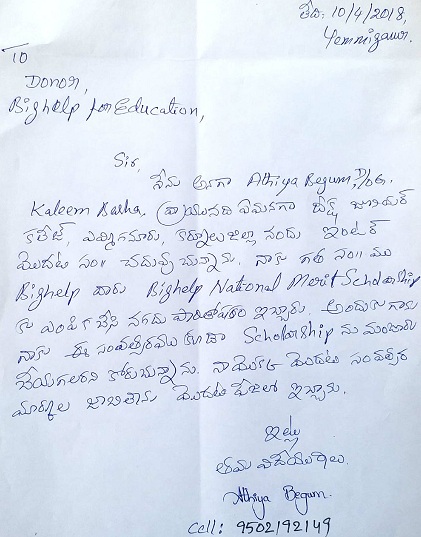 తేది: 10/4/2018,
Yemmiganur.
To
Donor,
Bighelp for Education,
Sir,
నేను అనగా Athiya Begum, D/OG.
Kaleem Basha. వ్రాయునది ఏమనగా జూనియర్
కాలేజ్, ఎమ్మిగనూరు, కర్నూలుజిల్లా నందు ఇంటర్
మొదట సం॥ చదువుచున్నాను. నాకు గత సం॥ ము
Bighelp వారు Bighelp National Merit Scholarship
కు ఎంపిక చేసి నగదు పారితోషకం ఇచ్చారు. అందుకుగాను
నాకు ఈ సంవత్సరము కూడా Scholarship ను మంజూరు
చేయగలరని కోరుచున్నాను. నాయొక్క మొదట సంవత్సర
మార్కుల జాబితాను మొదట పేజీలో ఇచ్చాను.
ఇట్లు
తమ విధేయురాలు.
Athiya Begum.
Cell: 9502192149